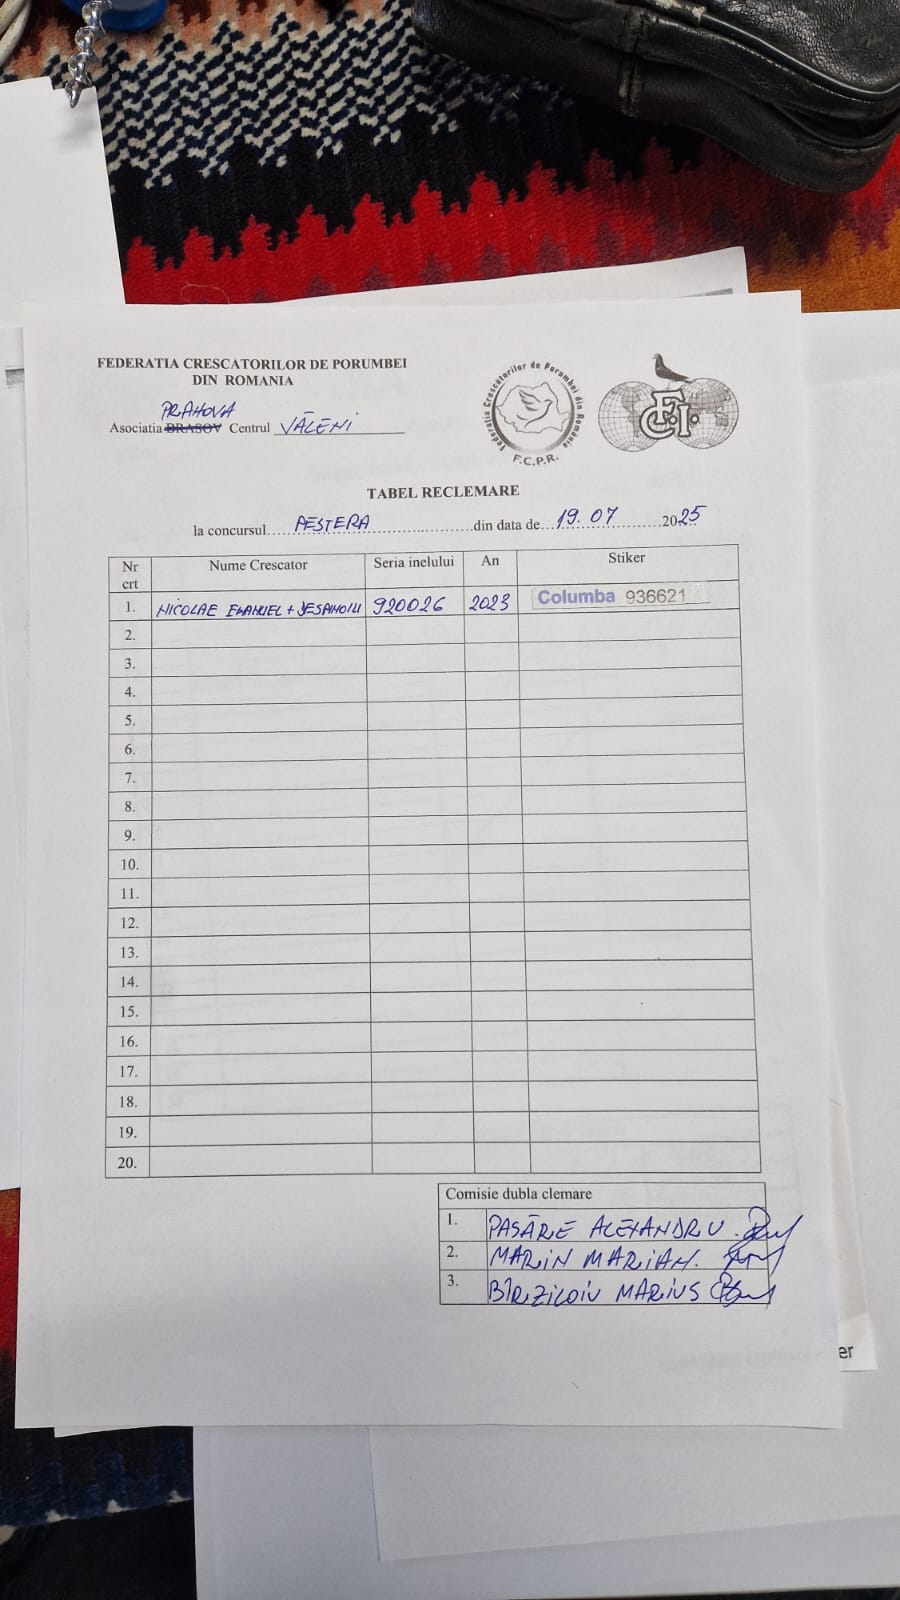 FEDERATIA CRESCATORILOR DE PORUMBEI
DIN ROMANIA
PRAHOVA
Asociatia BRASOV Centrul VĂLENI
Federatia Crescătorilor de Porumbei din România
F.C.P.R.
FCI
TABEL RECLEMARE
la concursul PESTERA din data de 19.07 2025
Nr crt Nume Crescator Seria inelului An Stiker
1. NICOLAE EMANUEL + 920026 2023 Columba 936621
2.
3.
4.
5.
6.
7.
8.
9.
10.
11.
12.
13.
14.
15.
16.
17.
18.
19.
20.
Comisie dubla clemare
1. PASĂRE ALEXANDRU
2. MARIN MARIAN.
3. BÎRZILOIU MARIUS
er